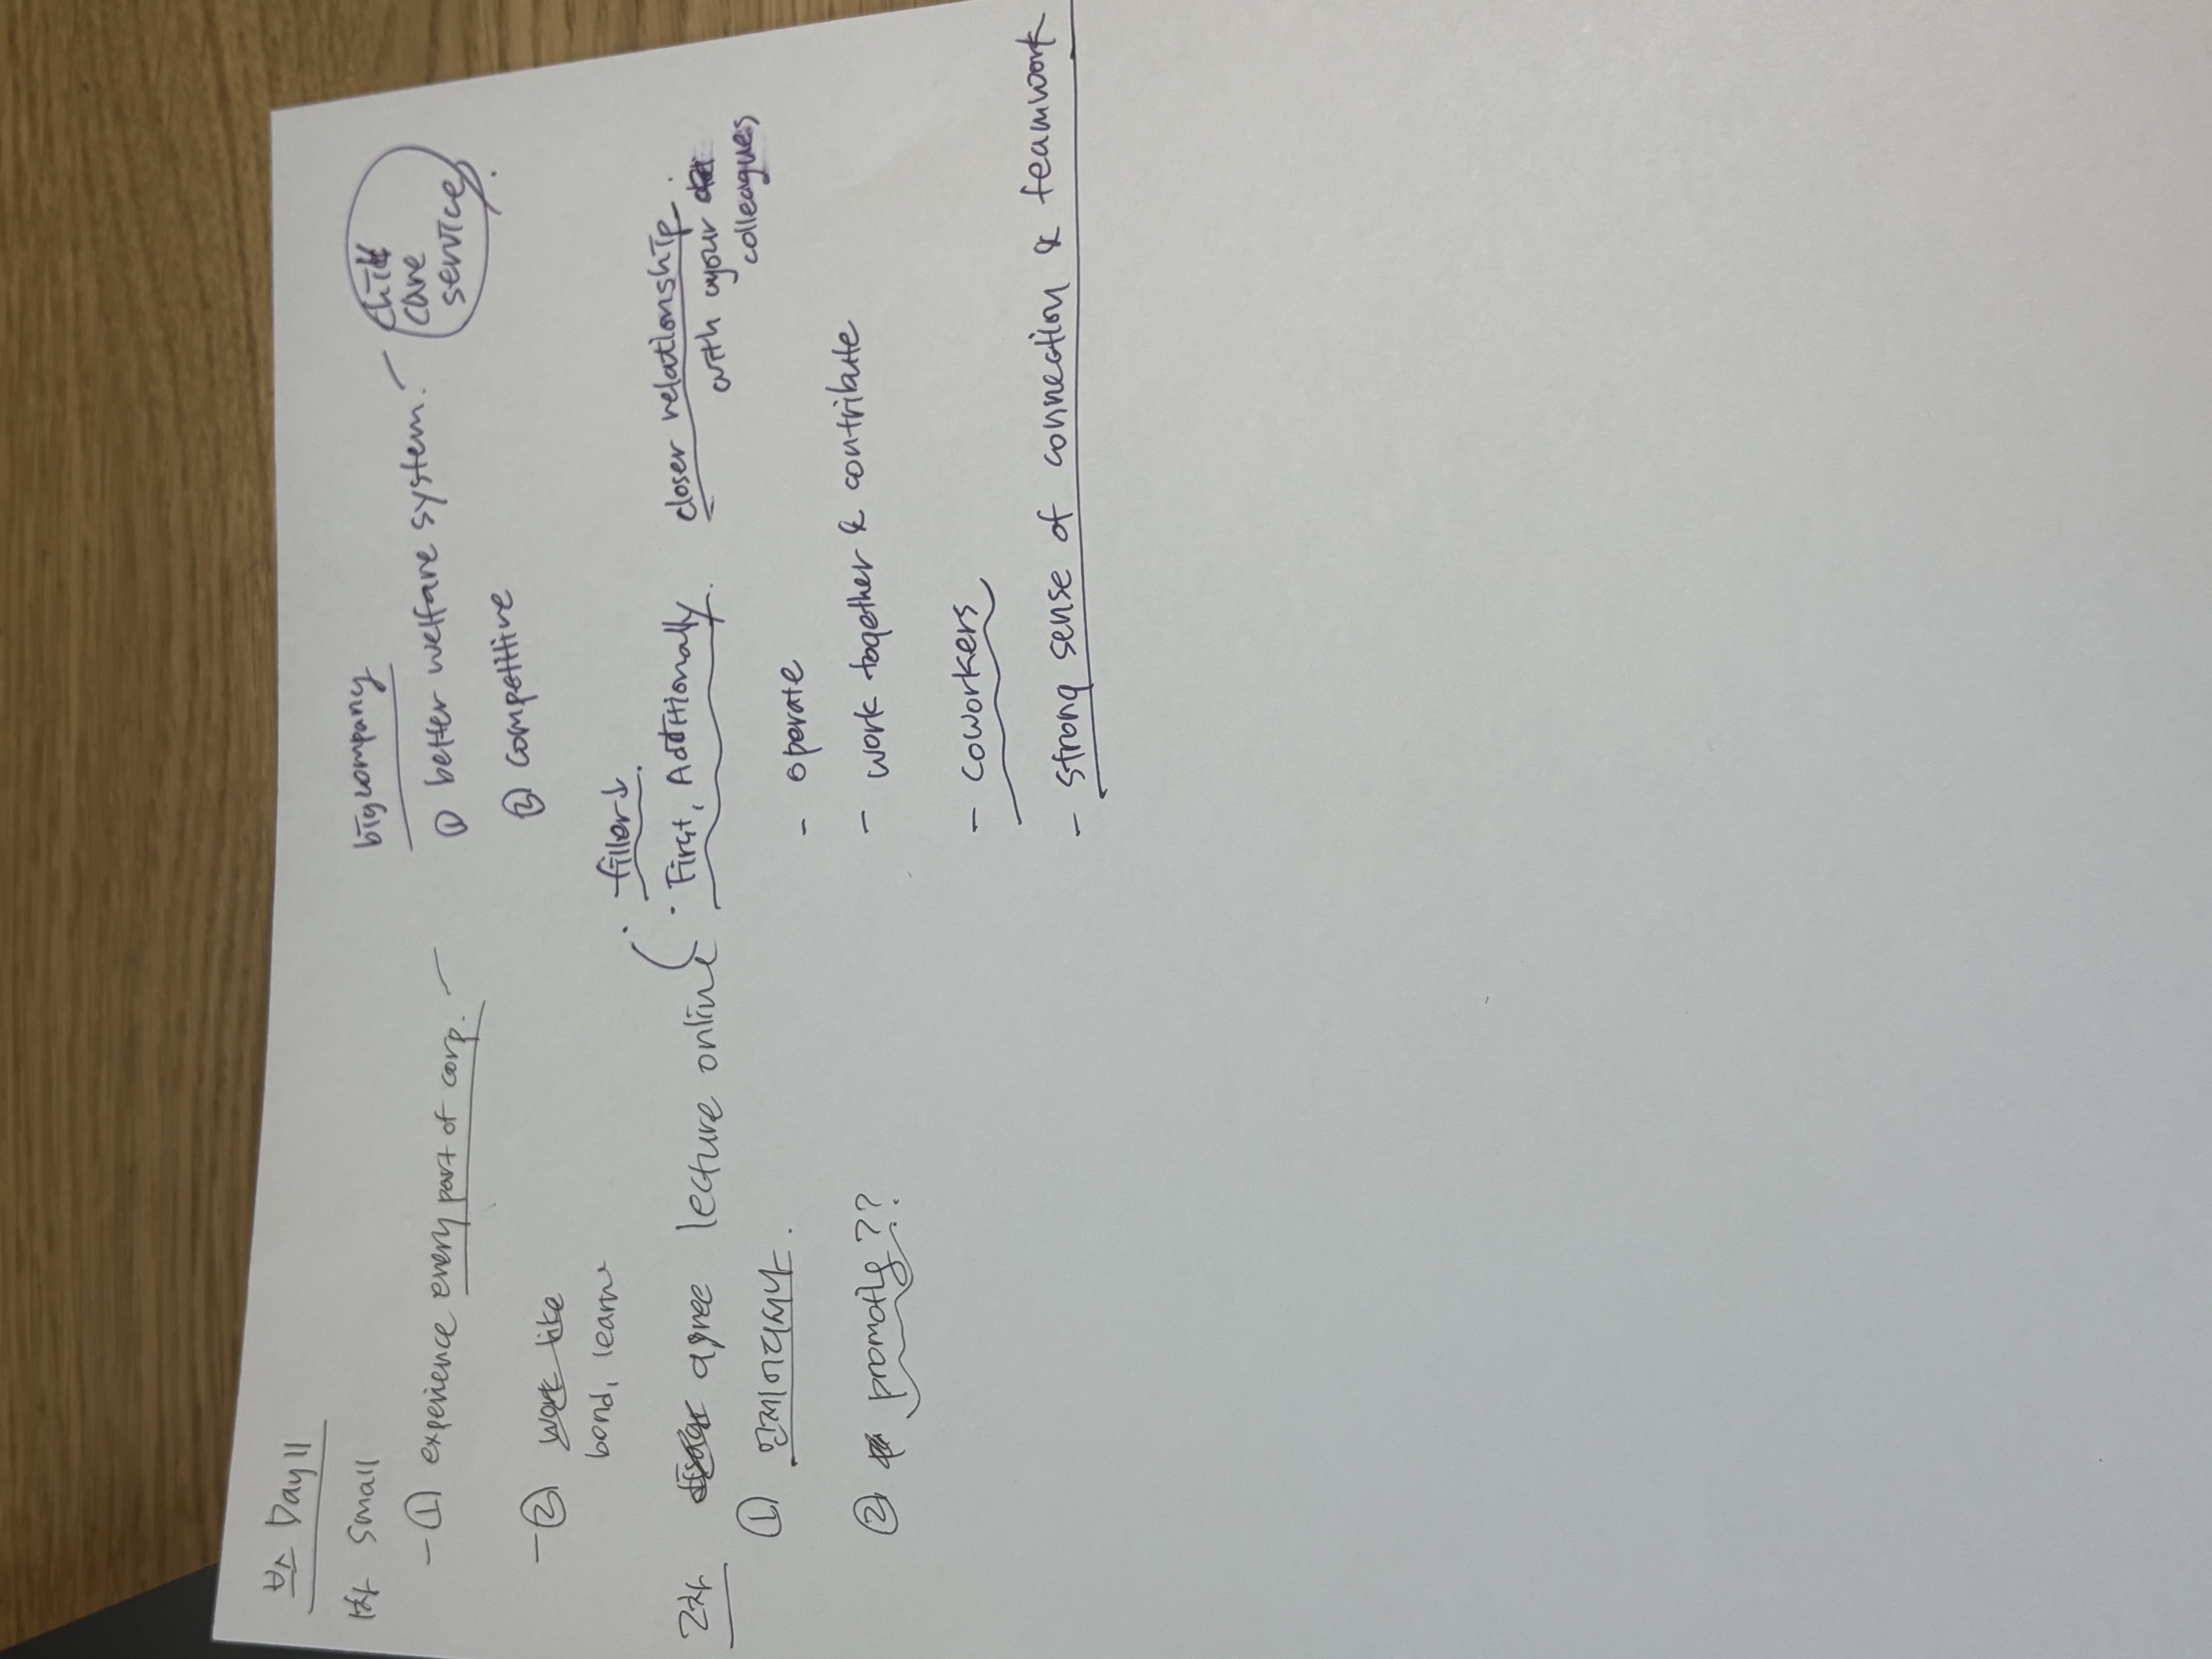 부스 Day11
1차 small
- ① experience every part of corp. -
- ② work like
bond, learn
2차 agree lecture online
① 언제어디서나.
② promotly??
big company
① better welfare system. -
child care service.
② competitive
· filler↓.
· First, Additionally.
closer relationship.
with your
colleagues
- operate
- work together & contribute
- coworkers
- strong sense of connection & teamwork